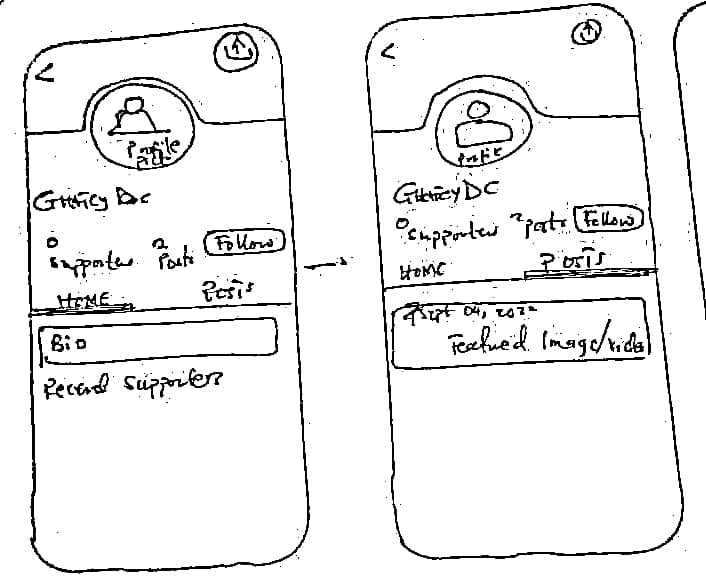 Profile
Pic
DC
0
2
Supporter
Posts
Follow
HOME
Posts
Bio
Recent Supporters
Profile
DC
0 Supporter 2 Posts Follow
HOME
Posts
Sept 04, 2022
Featured Image/video